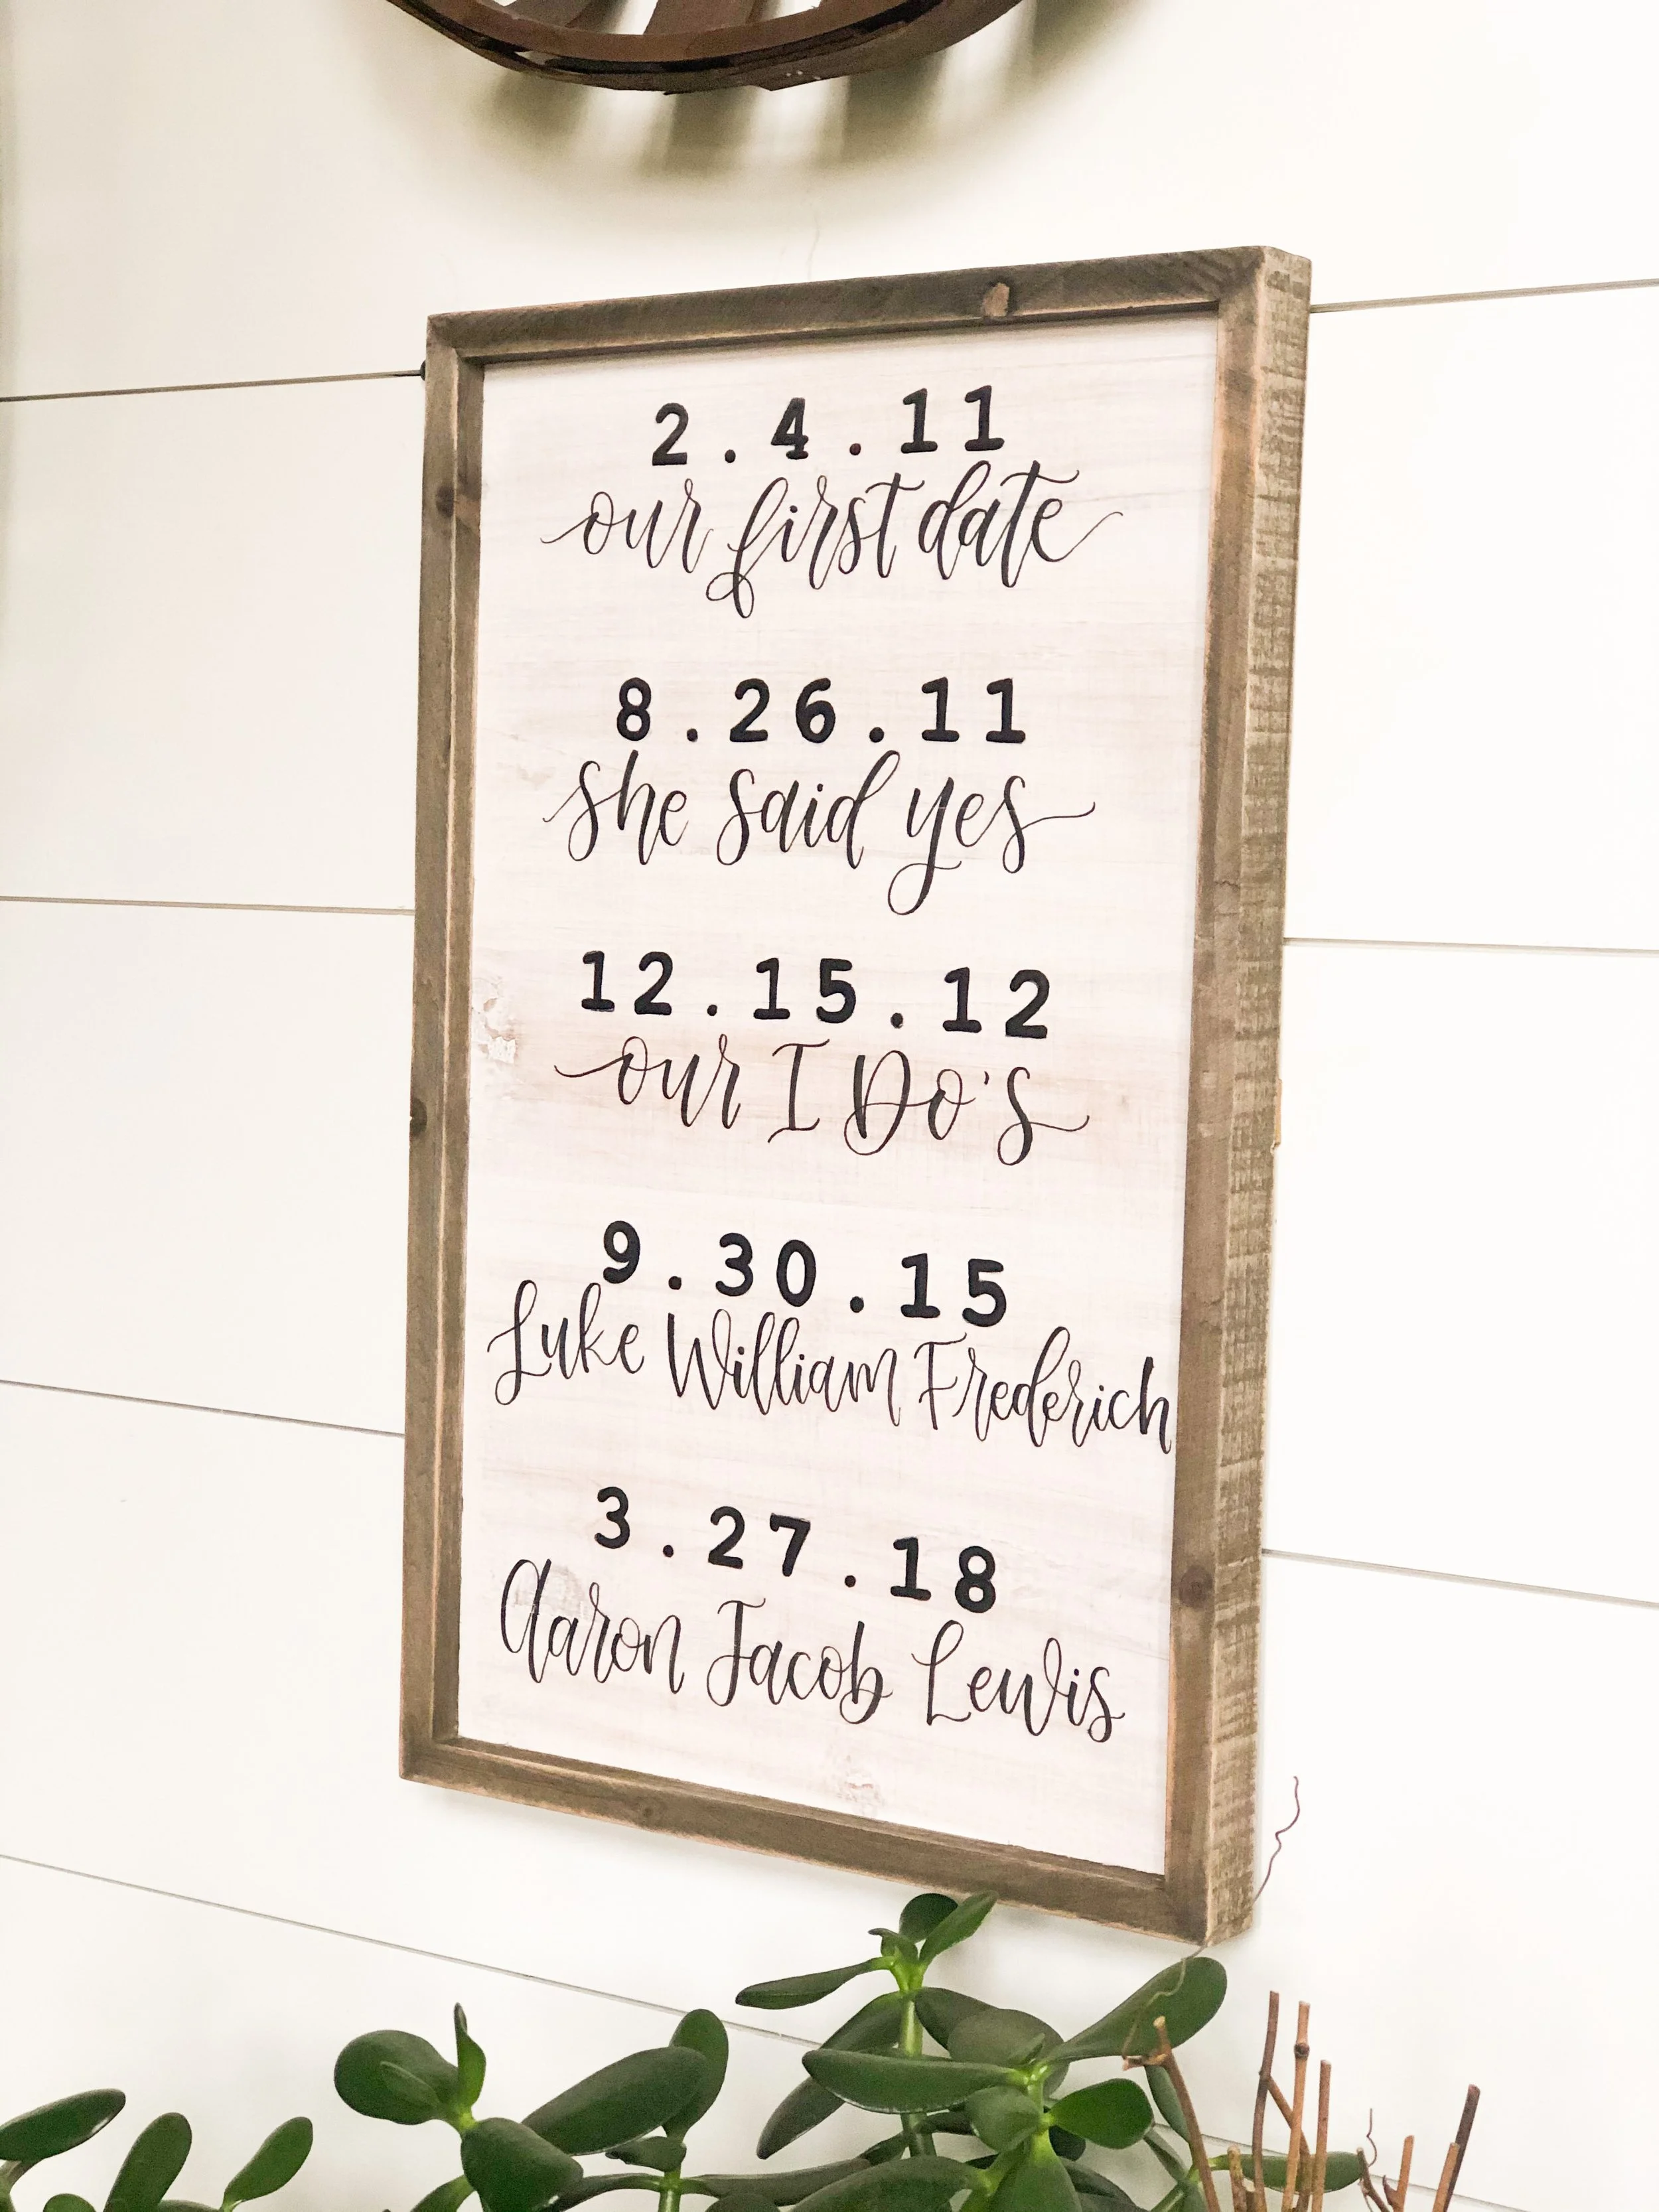 2.4.11
our first date
8.26.11
she said yes
12.15.12
our I Do's
9.30.15
Luke William Frederich
3.27.18
Aaron Jacob Lewis